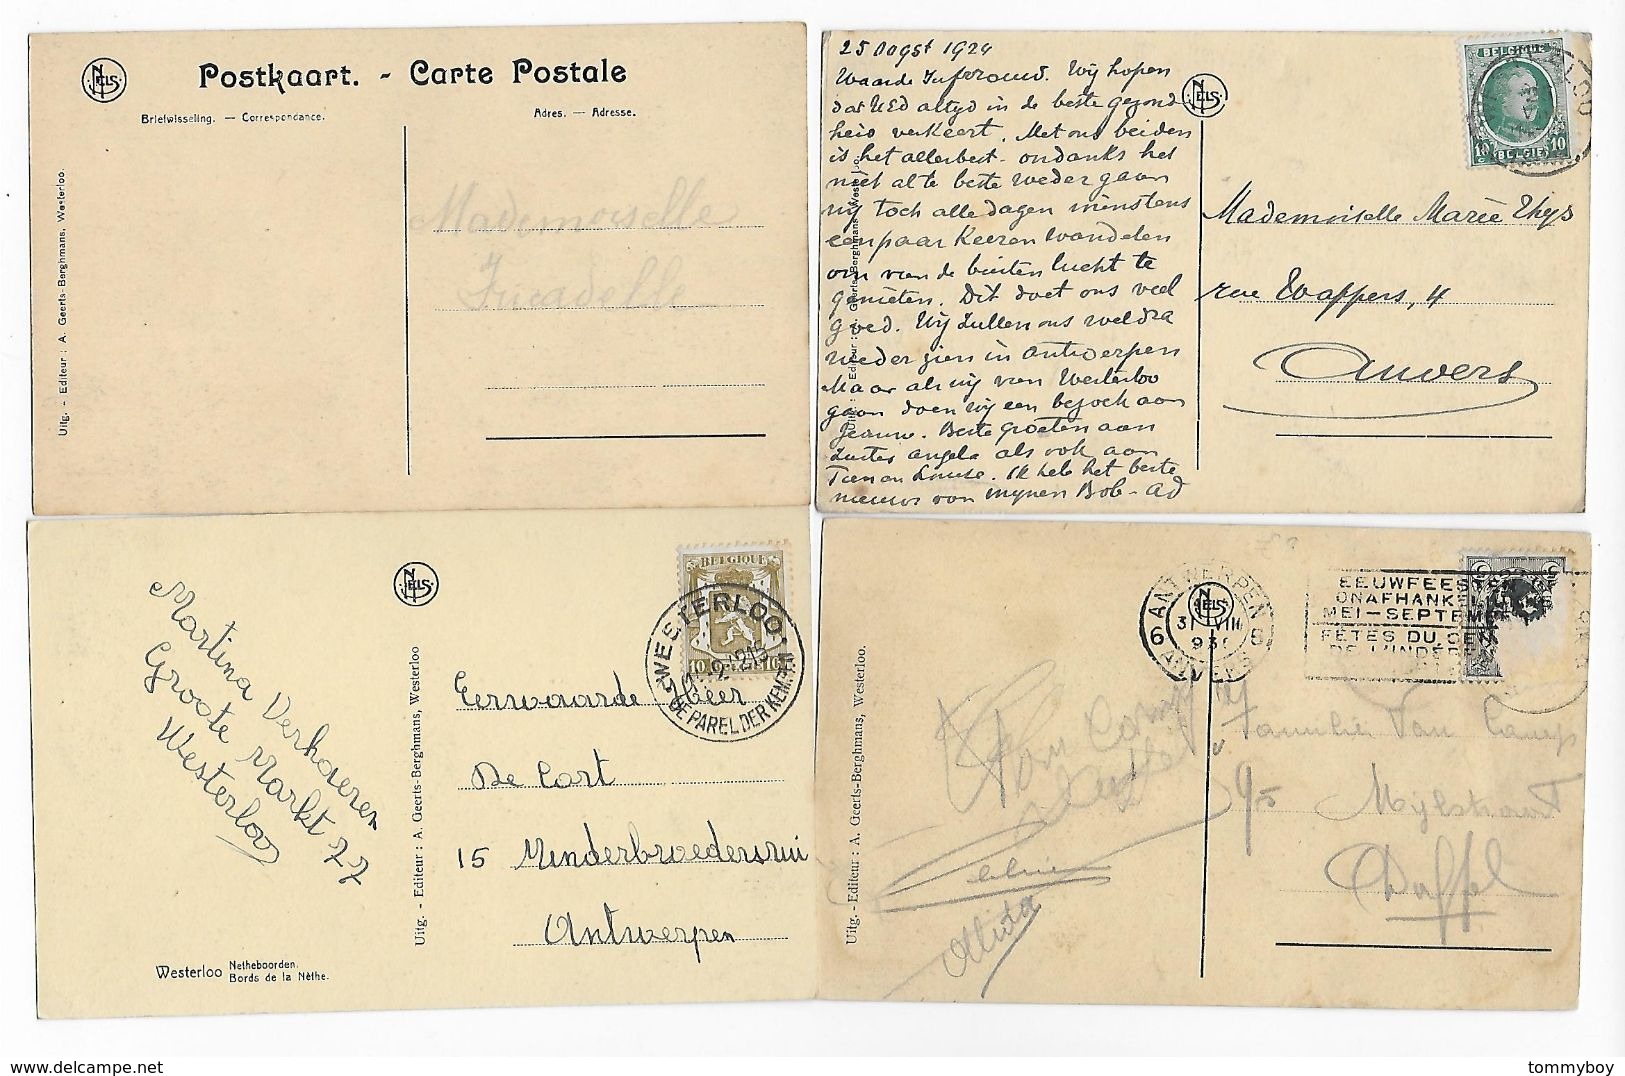 NELS
Postkaart. - Carte Postale
Briefwisseling. — Correspondance.
Adres. — Adresse.
Uitg. - Editeur : A. Geerts-Berghmans, Westerloo.
Mademoiselle
25 Oogst 1924
Waarde Juffrouw. Wij hopen
dat UED altyd in de beste gezond
heid verkeert. Met ons beiden
is het allerbest - ondanks het
niet al te beste weder gaan
wij toch alle dagen minstens
een paar keeren wandelen
om van de buiten lucht te
genieten. Dit doet ons veel
goed. Wij zullen ons weldra
weder zien in Antwerpen
Maar als wij van Westerloo
gaan doen wij een bezoek aan
Jeanne. Beste Groeten aan
Zuster Angela als ook aan
Louise. Ik heb het beste
nieuws van mynen Bob - Ad
Uitg. - Editeur : A. Geerts-Berghmans, Westerloo.
NELS
BELGIQUE
10 C 10
BELGIË
Mademoiselle Marie Thys
rue Wappers, 4
Anvers
Martina Verhoeren
Groote Markt 77
Westerloo
NELS
Uitg. - Editeur : A. Geerts-Berghmans, Westerloo
BELGIQUE
10
WESTERLOO
DE PAREL DER KEMPEN
Eerwaarde Heer
De Cort
15 Minderbroedersrui
Antwerpen
Westerloo Netheboorden.
Bords de la Nèthe.
Uitg. - Editeur : A. Geerts-Berghmans, Westerloo.
NELS
6 ANTWERPEN 6
31 VIII
ANVERS
EEUWFEESTEN
ONAFHANKEL
MEI-SEPTEM
FÊTES DU CE
DE L'INDÉPE
Familie Van Camp
95 Mijlstraat
Duffel
Alida
tommyboy